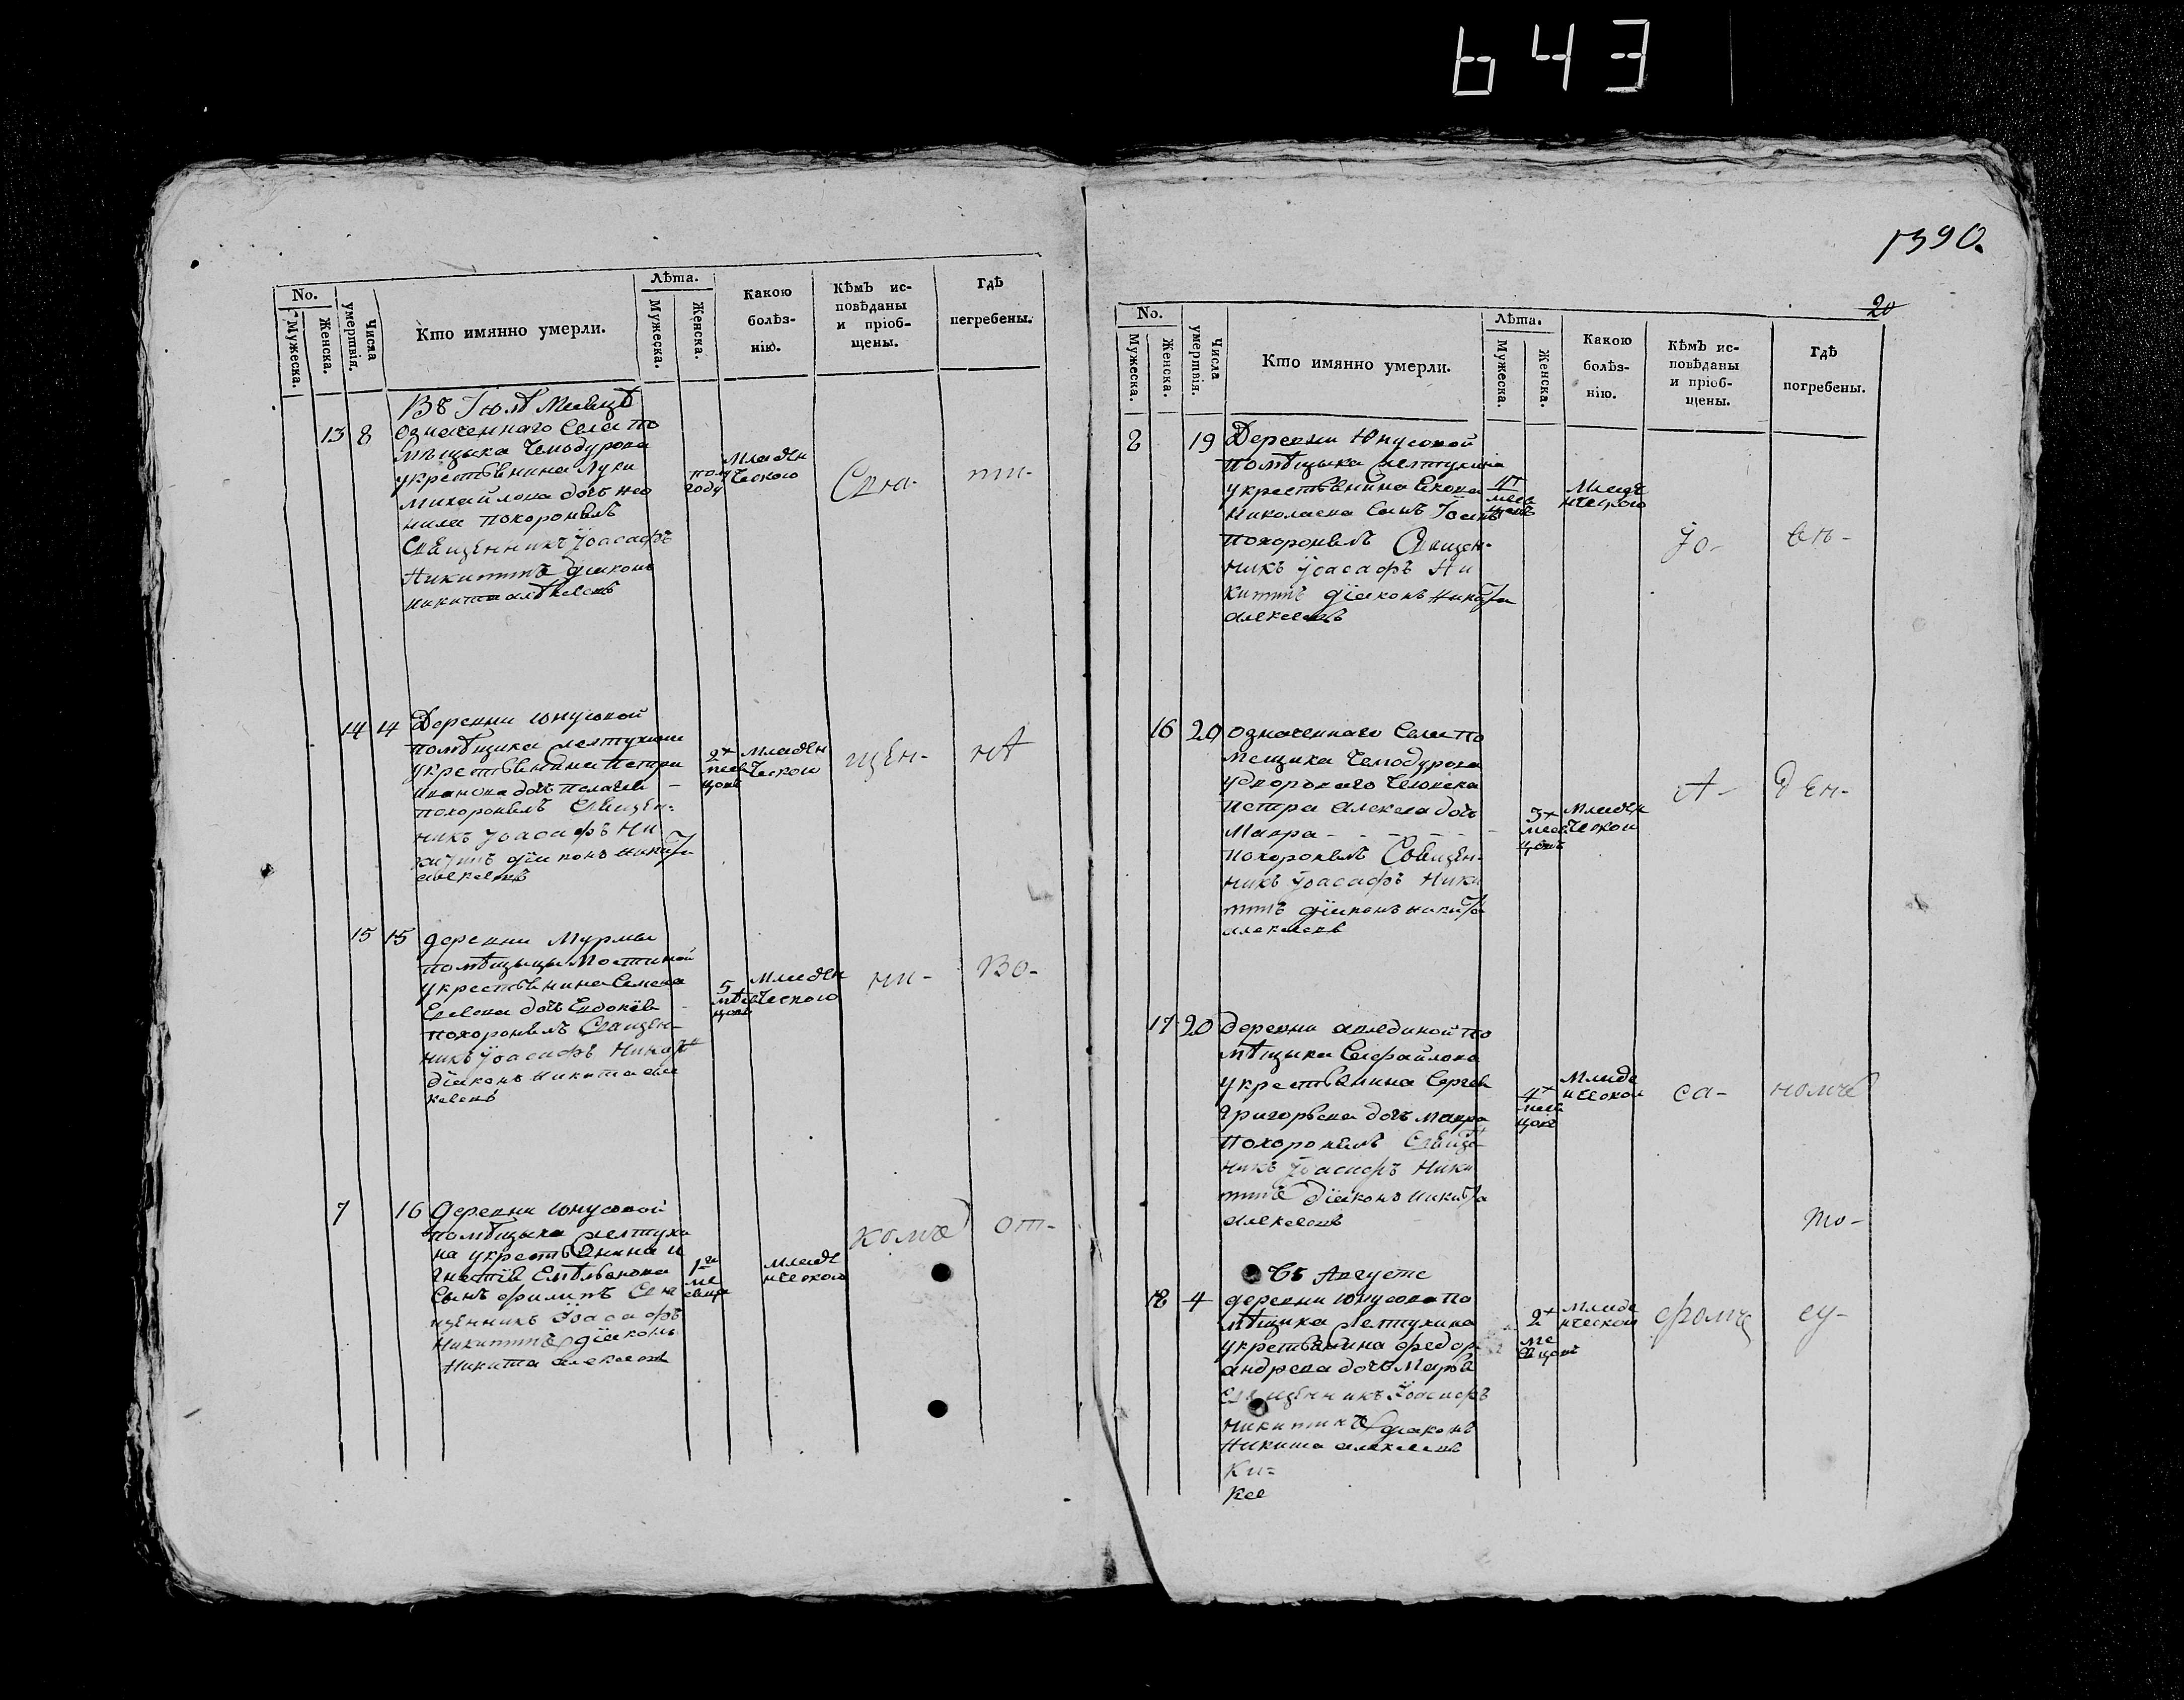 643
1390.
20
No.
Мужеска.
Женска.
Числа умертвія.
Кто имянно умерли.
Лѣта.
Мужеска.
Женска.
Какою болѣз-
нію.
Кѣмъ ис-
повѣданы
и пріоб-
щены.
Гдѣ
пегребены.
Въ Іюлѣ Месяцѣ
13 8 означеннаго Села по
мѣщыка Чемодурова
укрестьянина Луки
Михайлова дочь Нео
нила похоронилъ
Священникъ Іоасафъ
Никитинъ діаконъ
никита алѣксеевъ
полу
году
Младен
ческою
Свя-
ти-
14 14 Деревни юнусовой
помѣщика
укрестьянина петра
иванова дочь пелагея
похоронилъ Священ-
никъ Іоасафъ Ни
китинъ діаконъ никита
алексеевъ
2х
месе
цовъ
Младен
ческою
щен-
на
15 15 деревни Мурмы
помѣщыцы Мостиной
укрестьянина Семена
дочь Евдокѣя
похоронилъ Священ-
никъ Іоасафъ Никит
діаконъ никита але
ксеевъ
5
мѣся
цовъ
Младен
ческою
ни-
во-
7 16 деревни юнусовой
помѣщыка
на укрестьянина и
гнатѣя Емѣльянова
Сынъ филипъ Свя
щенникъ Іоасафъ
Никитинъ діаконъ
Никита алексеевъ
1го
ме
сеца
младе
нческою
комъ
от-
No.
Мужеска.
Женска.
Числа умертвія.
Кто имянно умерли.
Лѣта.
Мужеска.
Женска.
Какою
болѣз-
нію.
Кѣмъ ис-
повѣданы
и пріоб-
щены.
Гдѣ
погребены.
8 19 Деревни Юнусовой
помѣщыка
укрестьянина Якова
Николаева Сынъ Іоанъ
похоронилъ Священ-
никъ Іоасафъ Ни
китинъ діаконъ Никита
алексеевъ
4х
месе
цовъ
Младе
нческою
Іо-
ве-
16 20 означеннаго Села по
мещика Чемодурова
удворового Человека
петра алексева дочь
Мавра
похоронилъ Священ-
никъ Іоасафъ Ники
тинъ діаконъ никита
алексеевъ
3х
месе
цовъ
Младен
ческою
а-
ден-
17 20 деревни по
мѣщыка
укрестьянина Сергея
Григорьева дочь мавра
похоронилъ Священ
никъ Іоасафъ Ники
тинъ діаконъ никита
алексеевъ
4х
месе
цовъ
Младе
нческою
са-
номъ
то-
Въ Августе
18 4 деревни юнусова по
мѣщика
укрестьянина федор
андреева дочь Марья
Священникъ Іоасафъ
никитинъ діаконъ
Никита алексеевъ
2х
ме
сяцовъ
Младе
нческою
фомъ
су-
Ки-
ксе